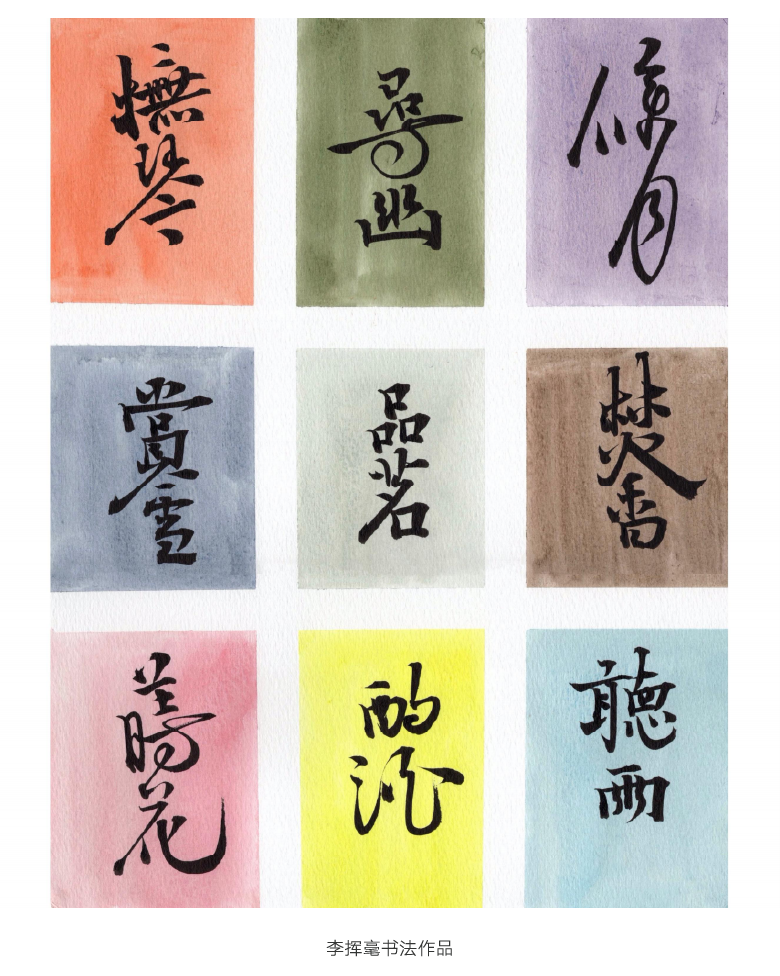 撫琴
尋幽
候月
賞雪
品茗
焚香
蒔花
酌酒
聽雨
李挥毫书法作品